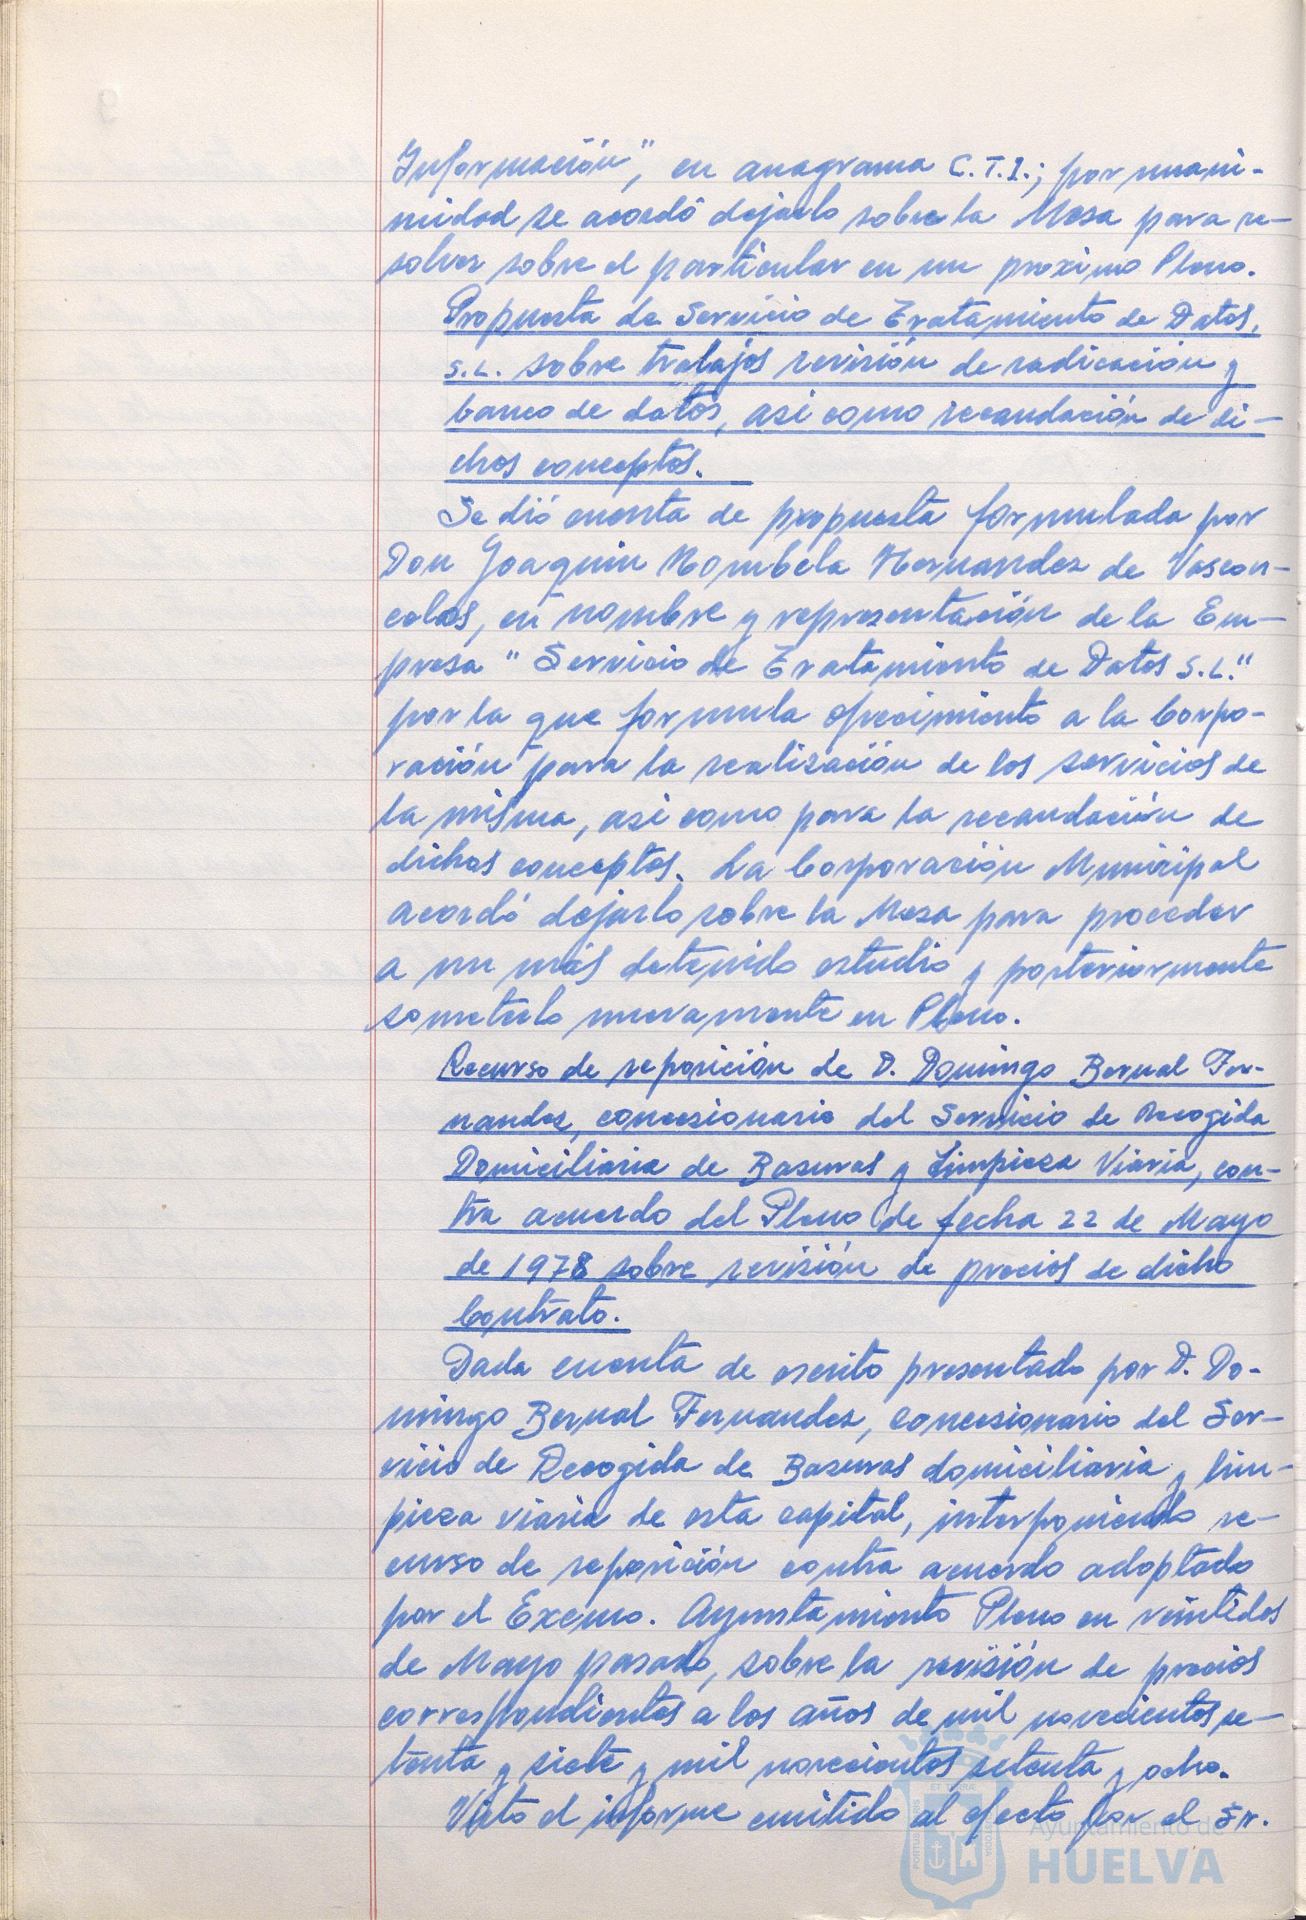 Información", en anagrama C.T.I.; por unani-
midad se acordó dejarlo sobre la Mesa para re-
solver sobre el particular en un próximo Pleno.
Propuesta de Servicio de Tratamiento de Datos,
S.L. sobre trabajos revisión de radicación y
banco de datos, asi como recaudación de di-
chos conceptos.
Se dió cuenta de propuesta formulada por
Don Joaquin Mombela Hernandez de Vascon-
celos, en nombre y representación de la Em-
presa "Servicio de Tratamiento de Datos S.L."
por la que formula ofrecimiento a la Corpo-
ración para la realización de los servicios de
la misma, asi como para la recaudación de
dichos conceptos. La Corporación Municipal
acordó dejarlo sobre la Mesa para proceder
a un más detenido estudio y posteriormente
someterlo nuevamente en Pleno.
Recurso de reposición de D. Domingo Bernal Fer-
nandez, concesionario del Servicio de Recogida
Domiciliaria de Basuras y Limpieza Viaria, con-
tra acuerdo del Pleno de fecha 22 de Mayo
de 1978 sobre revisión de precios de dicho
Contrato.
Dada cuenta de escrito presentado por D. Do-
mingo Bernal Fernandez, concesionario del Ser-
vicio de Recogida de Basuras domiciliaria y lim-
pieza viaria de esta capital, interponiendo re-
curso de reposición contra acuerdo adoptado
por el Excmo. Ayuntamiento Pleno en veintidos
de Mayo pasado, sobre la revisión de precios
correspondientes a los años de mil novecientos se-
tenta y siete y mil novecientos setenta y ocho.
Visto el informe emitido al efecto por el Sr.
Ayuntamiento de
HUELVA